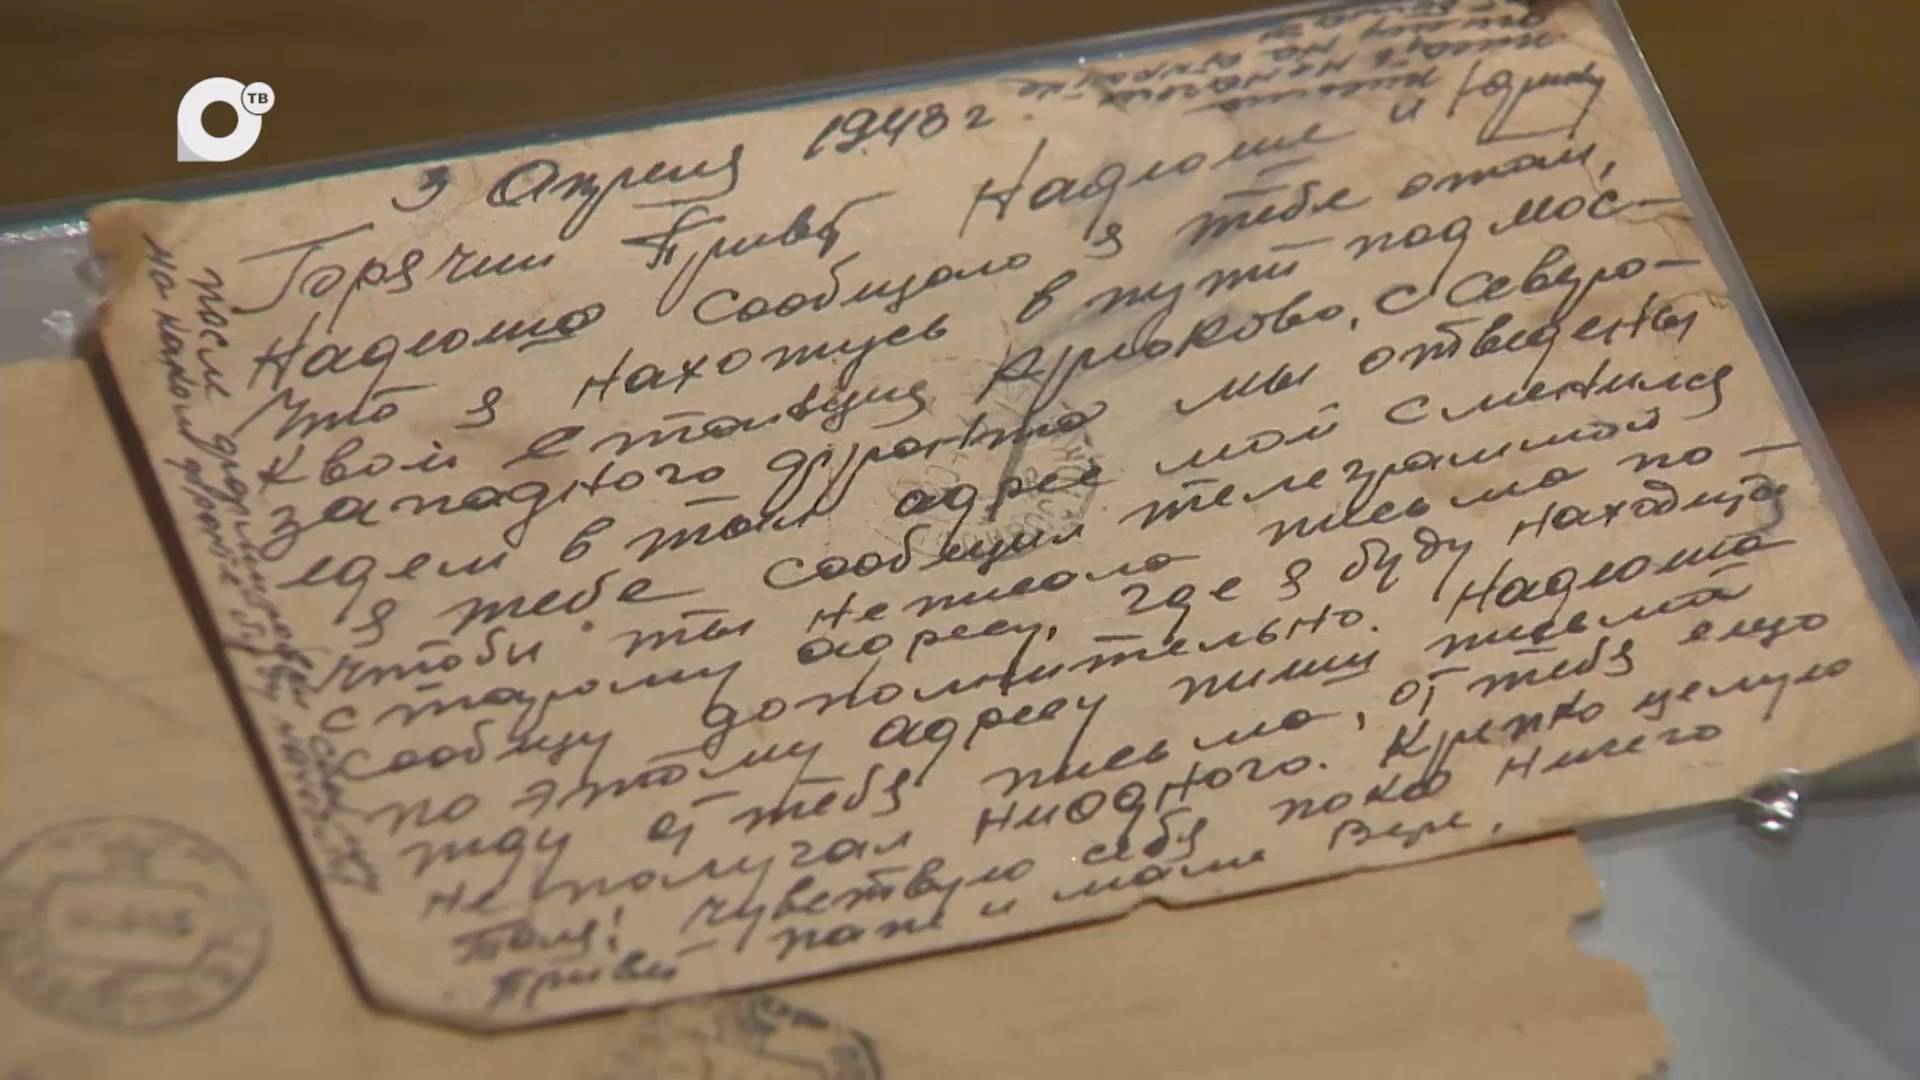 ТВ
3 Апреля 1943 г.
Горячий Привет Надюше и Юрику
Надюша сообщаю я тебе о том,
что я нахожусь в пути под мос-
квой станция Крюково, с северо-
западного фронта мы отведены
едем в тыл адрес мой сменился
я тебе сообщил телеграммой
чтобы ты не писала письма по-
старому адресу, где я буду находится
сообщу дополнительно. Надюша
по этому адресу пиши письма
жду от тебя письма, от тебя ещо
не получал ниодного. Крепко целую
Толя! чувствую себя пока ничего
привет папе и маме Вере,
после
на каком фронте буду